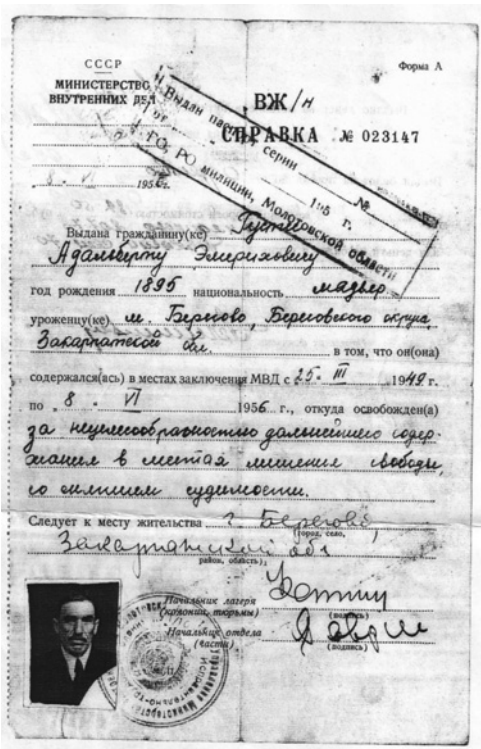 СССР
Форма А
МИНИСТЕРСТВО
ВНУТРЕННИХ ДЕЛ
Выдан паспорт серии
№
195 г.
ГО, РО милиции, Молотовской области
ВЖ/н
СПРАВКА № 023147
8. VI 1956г.
Выдана гражданину(ке)
Адальберту Эмериховичу
год рождения 1895 национальность мадьяр
уроженцу(ке) м. Берегово, Береговского округа,
Закарпатской обл. в том, что он(она)
содержался(ась) в местах заключения МВД с 25. III 1949 г.
по 8. VI 1956 г., откуда освобожден(а)
за нецелесообразностью дальнейшего содер-
жания в местах лишения свободы,
со снятием судимости.
Следует к месту жительства г. Берегово,
(город, село,
Закарпатской обл
район, область)
Начальник лагеря
(колонии, тюрьмы)
(подпись)
Начальник отдела
(части)
(подпись)